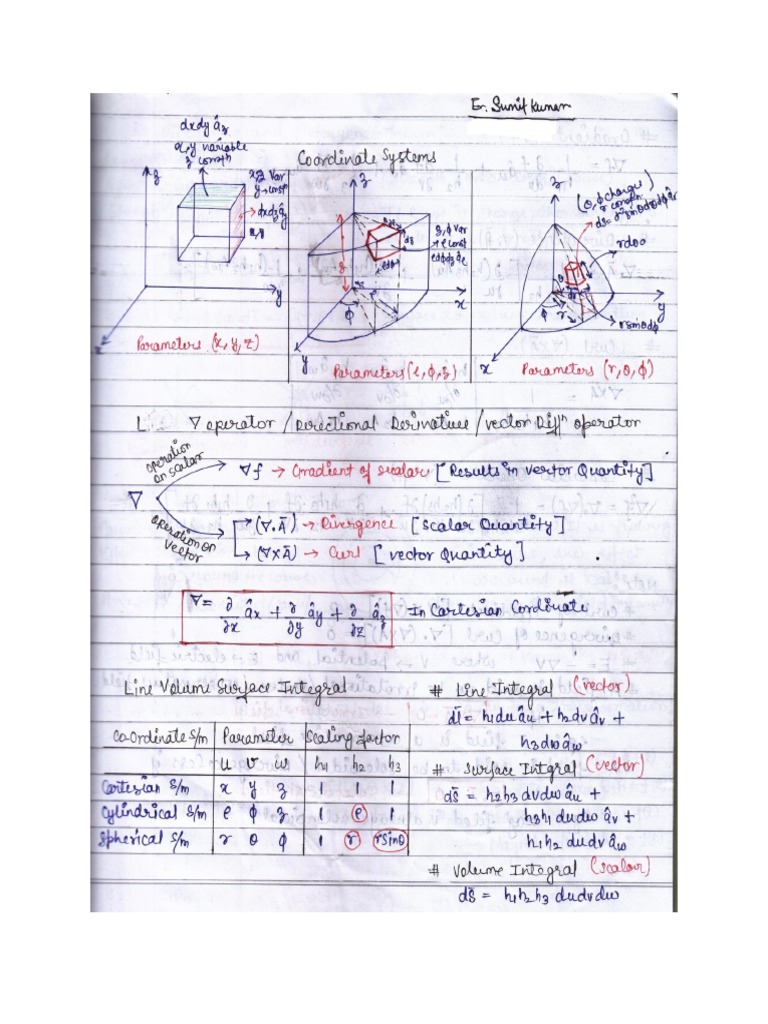 Er. Sunil Kumar
Coordinate Systems
dxdy âz
x, y variable
z const
z
x, z Var
y → const
dxdz ây
y
x
Parameters (x, y, z)
z
z, φ Var
ρ const
ρdφdz âρ
dz
ρdφ
z
φ
x
y
Parameters (ρ, φ, z)
z
(θ, φ change)
r const
ds = r² sinθdθdφ âr
rdθ
θ
φ
r
y
rsinθdφ
x
Parameters (r, θ, φ)
1. ∇ operator / Directional Derivative / vector Diffⁿ operator
operation on scalar
∇f → Gradient of scalar [Results in vector Quantity]
∇
operation on vector
→ (∇.Ā) → Divergence [scalar Quantity]
→ (∇×Ā) → Curl [vector Quantity]
∇ = ∂/∂x âx + ∂/∂y ây + ∂/∂z âz In Cartesian Cordinate
Line Volume Surface Integral
Coordinate S/m Parameter Scaling factor
u v w h₁ h₂ h₃
Cartesian S/m x y z 1 1 1
Cylindrical S/m ρ φ z 1 ρ 1
Spherical S/m r θ φ 1 r rsinθ
# Line Integral (vector)
dl̄ = h₁du âu + h₂dv âv +
h₃dw âw
# Surface Intgral (vector)
ds̄ = h₂h₃ dvdw âu +
h₃h₁ dudw âv +
h₁h₂ dudv âw
# Volume Integral (scalar)
ds̄ = h₁h₂h₃ dudvdw